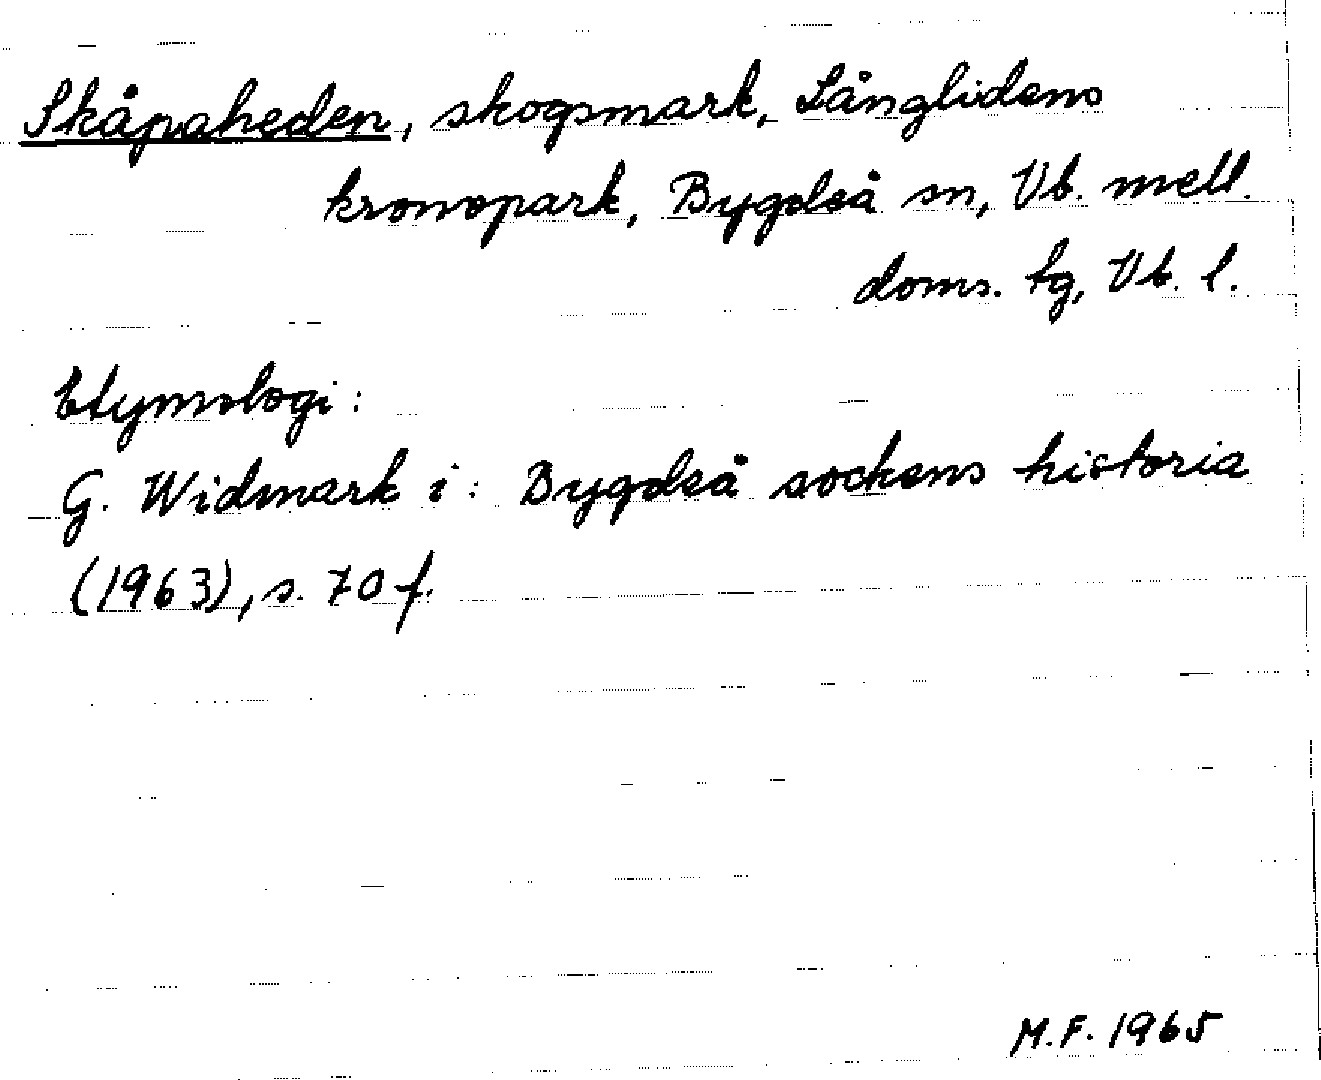 Skåpaheden, skogsmark, Långlidens
kronopark, Bygdeå sn, Vb. mell.
doms. tg, Vb. l.
Etymologi:
G. Widmark i: Bygdeå sockens historia
(1963), s. 70 f.
M.F. 1965